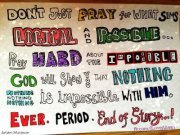 DON'T JUST PRAY FOR WHAT SEEMS
LOGICAL AND POSSIBLE...
PRAY HARD ABOUT THE IMPOSSIBLE
GOD will Show THAT NOTHING
is Impossible WITH HIM.
EVER. PERIOD. End of Story...!